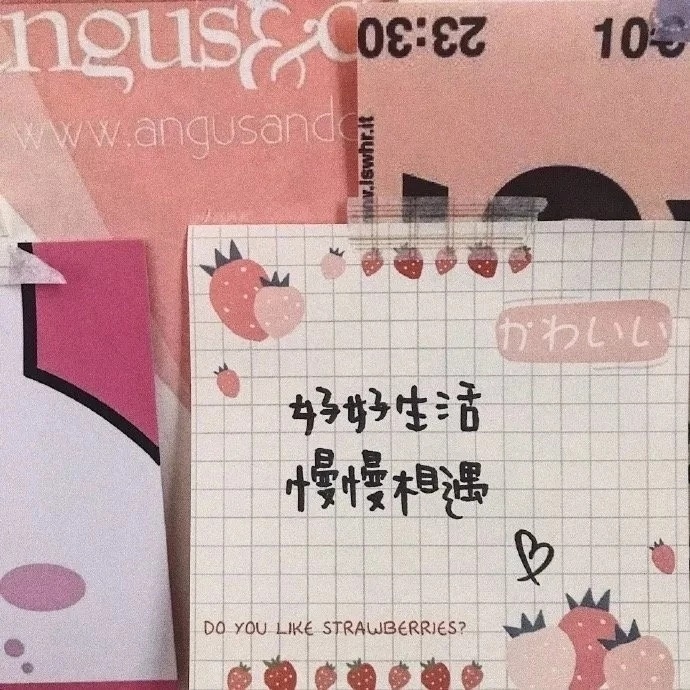 angus&c
www.angusando
23:30
www.iswhr.it
かわいい
好好生活
慢慢相遇
DO YOU LIKE STRAWBERRIES?